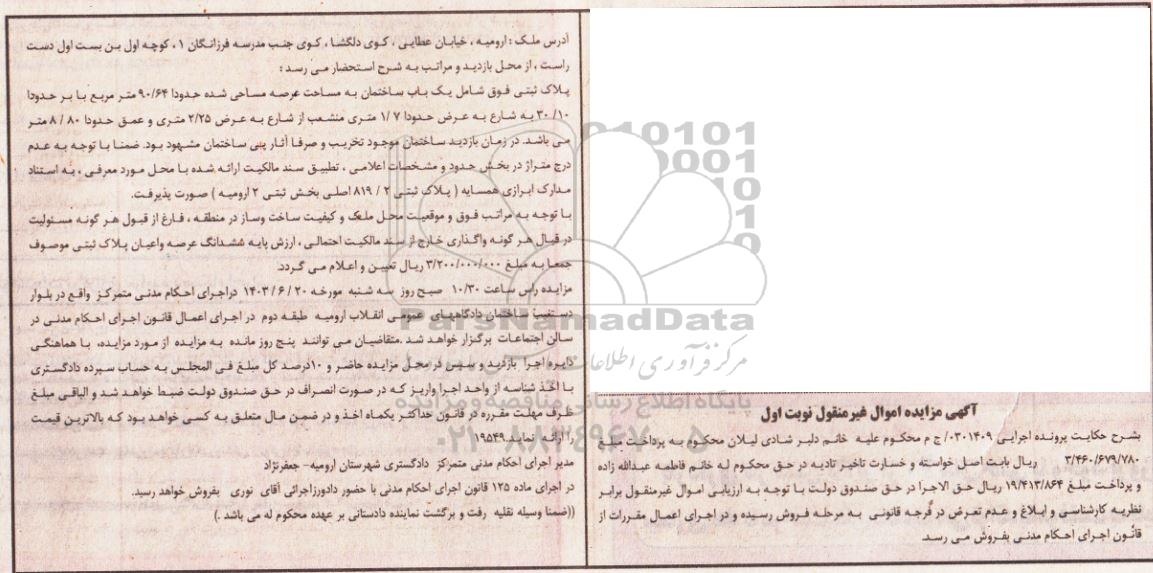 آگهی مزایده اموال غیرمنقول نوبت اول
بشرح حکایت پرونده اجرایی ۰۳۰۱۴۰۹/ ج م محکوم علیه خانم دلبر شادی لیلان محکوم به پرداخت مبلغ
۳/۴۶۰/۶۷۹/۷۸۰ ریال بابت اصل خواسته و خسارت تاخیر تادیه در حق محکوم له خانم فاطمه عبدالله زاده
و پرداخت مبلغ ۱۹/۴۱۳/۸۶۴ ریال حق الاجرا در حق صندوق دولت با توجه به ارزیابی اموال غیرمنقول برابر
نظریه کارشناسی و ابلاغ و عدم تعرض در فرجه قانونی به مرحله فروش رسیده و در اجرای اعمال مقررات از
قانون اجرای احکام مدنی بفروش می رسد.
آدرس ملک : ارومیه ، خیابان عطایی ، کوی دلگشا ، کوی جنب مدرسه فرزانگان ۱ ، کوچه اول بن بست اول دست
راست ، از محل بازدید و مراتب به شرح استحضار می رسد :
پلاک ثبتی فوق شامل یک باب ساختمان به مساحت عرصه مساحی شده حدودا ۹۰/۶۴ متر مربع با بر حدودا
۳۰/۱۰ به شارع به عرض حدودا ۱/۷ متری منشعب از شارع به عرض ۲/۲۵ متری و عمق حدودا ۸/۸۰ متر
می باشد. در زمان بازدید ساختمان موجود تخریب و صرفا آثار پی ساختمان مشهود بود. ضمنا با توجه به عدم
درج متراژ در بخش حدود و مشخصات اعلامی ، تطبیق سند مالکیت ارائه شده با محل مورد معرفی ، به استناد
مدارک ابرازی همسایه ( پلاک ثبتی ۲ / ۸۱۹ اصلی بخش ثبتی ۲ ارومیه ) صورت پذیرفت.
با توجه به مراتب فوق و موقعیت محل ملک و کیفیت ساخت وساز در منطقه ، فارغ از قبول هر گونه مسئولیت
در قبال هر گونه واگذاری خارج از سند مالکیت احتمالی ، ارزش پایه ششدانگ عرصه واعیان پلاک ثبتی موصوف
جمعا به مبلغ ۳/۲۰۰/۰۰۰/۰۰۰ ریال تعیین و اعلام می گردد.
مزایده راس ساعت ۱۰/۳۰ صبح روز سه شنبه مورخه ۲۰ / ۶ / ۱۴۰۳ دراجرای احکام مدنی متمرکز واقع در بلوار
دستغیب ساختمان دادگاههای عمومی انقلاب ارومیه طبقه دوم در اجرای اعمال قانون اجرای احکام مدنی در
سالن اجتماعات برگزار خواهد شد .متقاضیان می توانند پنج روز مانده به مزایده از مورد مزایده، با هماهنگی
دایره اجرا بازدید و سپس در محل مزایده حاضر و ۱۰درصد کل مبلغ فی المجلس به حساب سپرده دادگستری
با اخذ شناسه از واحد اجرا واریز که در صورت انصراف در حق صندوق دولت ضبط خواهد شد و الباقی مبلغ
ظرف مهلت مقرره در قانون حداکثر یکماه اخذ و در ضمن مال متعلق به کسی خواهد بود که بالاترین قیمت
را ارائه نمایند.۱۹۵۴۹
مدیر اجرای احکام مدنی متمرکز دادگستری شهرستان ارومیه- جعفرنژاد
در اجرای ماده ۱۲۵ قانون اجرای احکام مدنی با حضور دادورزاجرائی آقای نوری بفروش خواهد رسید.
((ضمنا وسیله نقلیه رفت و برگشت نماینده دادستانی بر عهده محکوم له می باشد .)
ParsNamadData
مرکز فرآوری اطلاعات
پایگاه اطلاع رسانی مناقصه و مزایده
۰۲۱-۸۸۳۴۹۶۷۰-۵